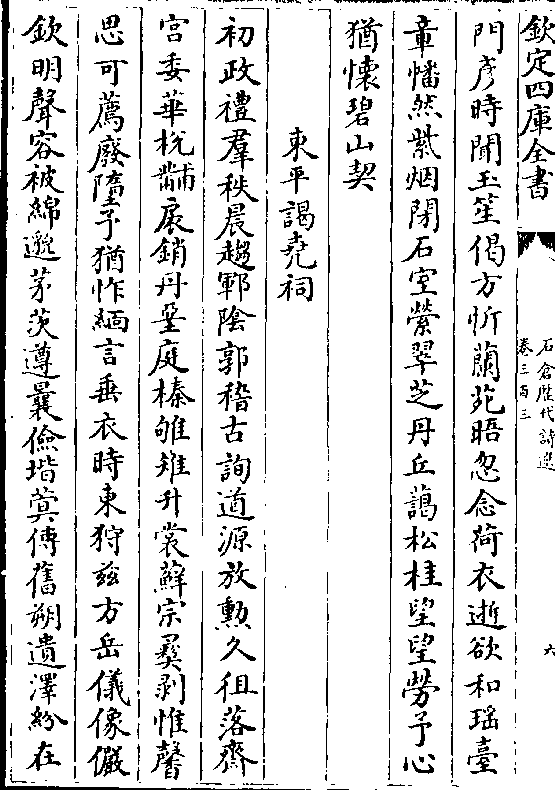 欽定四庫全書
石倉歷代詩選
卷三百三
六
門彥時聞玉笙偈方忻蘭苑晤忽念荷衣逝欲和瑶臺
章幡然紫烟閉石室縈翠芝丹丘藹松桂望望勞予心
猶懷碧山契
東平謁堯祠
初政禮羣秩晨趨鄆陰郭稽古詢道源放勲久徂落齋
宫委華棁黼扆銷丹堊庭榛雊雉升裳蘚宗彛剥惟馨
思可薦廢墮予猶怍緬言垂衣時東狩兹方岳儀像儼
欽明聲容被綿邈茅茨遵曩儉堦蓂傳舊朔遺澤紛在